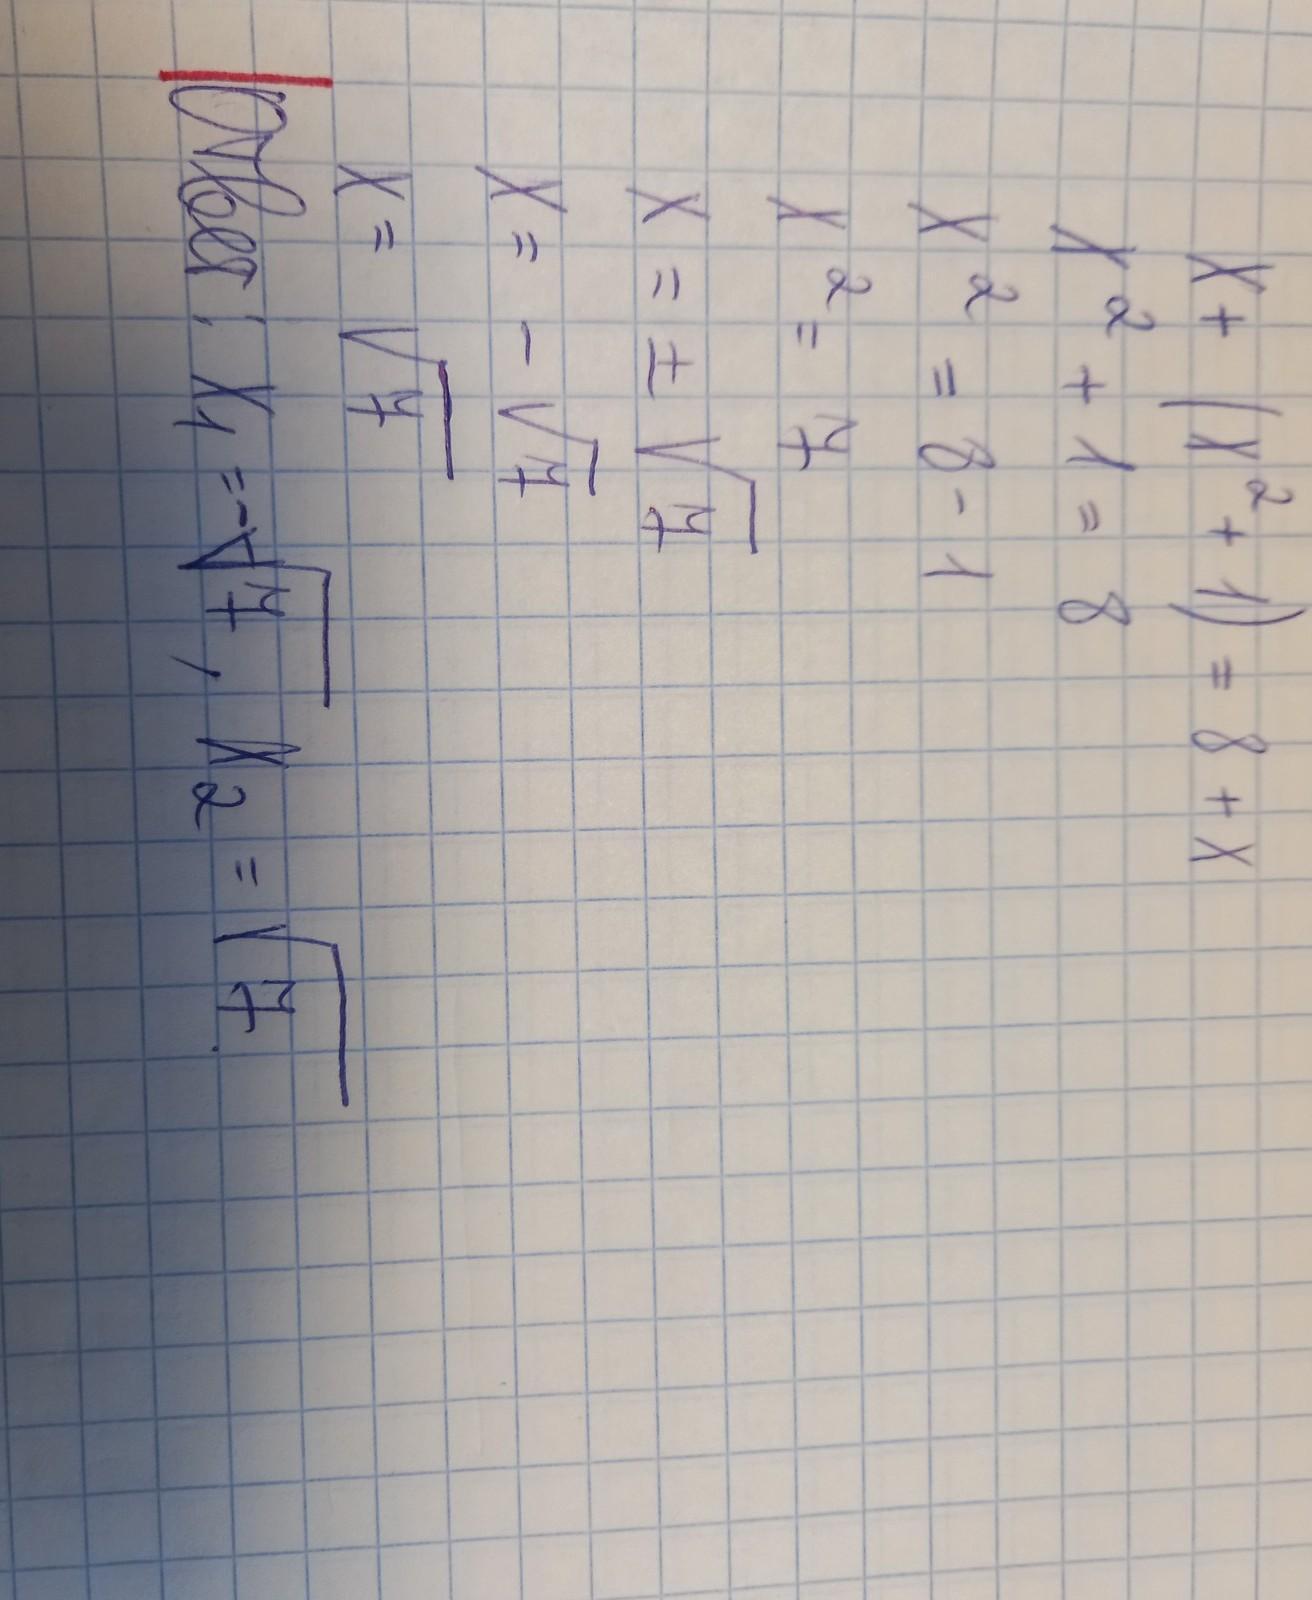 x + (x² + 1) = 8 + x
x² + 1 = 8
x² = 8 - 1
x² = 7
x = ± √7
x = - √7
x = √7
Ответ: x₁ = -√7, x₂ = √7.